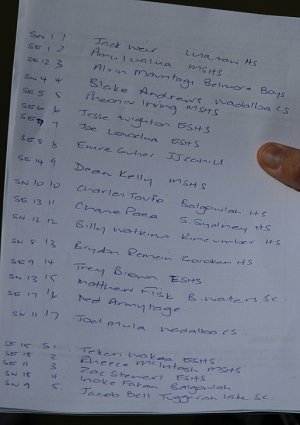 SN 1 1 Jack Weir Lurnea HS
SE 1 2 Amul Walua MSHS
SE 12 3 Alvin Mauntagi Belmore Boys
SN 4 4 Blake Andrews Wadalba CS
SE 5 5 Irving MSHS
SE 6 6 Jesse Wighton ESHS
7 Joe ESHS
SE 8 8 Emre Guler
SE 14 9 Dean Kelly MSHS
SN 10 10 Charles Taufa Balgowlah HS
SE 13 11 Chane Paea S Sydney HS
SN 12 12 Billy Watkins Kincumber HS
SN 8 13 Brydon Gorokan HS
SE 9 14 Trey Brown ESHS
SN 13 15 Matthew Fisk B. Waters SC.
SE 17 16 Ned Armytage.
SN 11 17 Joel Mula Wadalba CS.
SE 15 S1.
SE 18 2. ESHS
SE 11 3 Rheece McIntosh MSHS
SN 18 4. Zac Stewert ESHS
SN 9 5. Balgowlah
Jacob Bell Tuggerah Lake SC.